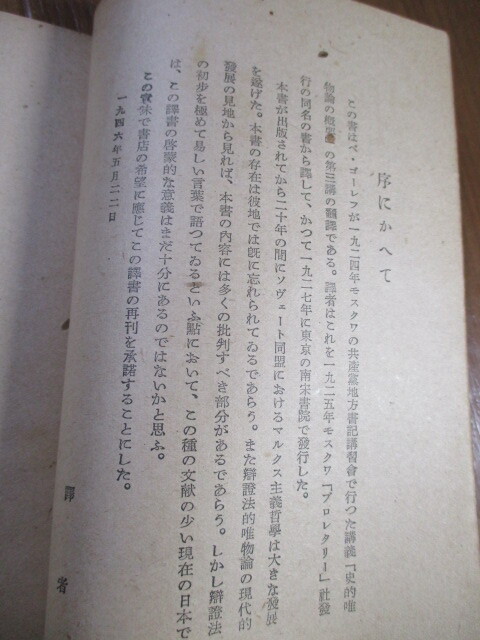 序にかへて
この書はベ・ゴーレフが一九二四年モスクワの共産黨地方書記講習會で行つた講義「史的唯
物論の概要」の第三講の飜譯である。譯者はこれを一九二五年モスクワ「プロレタリー」社發
行の同名の書から譯して、かつて一九二七年に東京の南宋書院で發行した。
本書が出版されてから二十年の間にソヴェート同盟におけるマルクス主義哲學は大きな發展
を遂げた。本書の存在は彼地では旣に忘れられてゐるであらう。また辯證法的唯物論の現代的
發展の見地から見れば、本書の內容には多くの批判すべき部分があるであらう。しかし辯證法
の初步を極めて易しい言葉で語つてゐるといふ點において、この種の文献の少い現在の日本で
は、この譯書の啓蒙的な意義はまだ十分にあるのではないかと思ふ。
この意味で書店の希望に應じてこの譯書の再刊を承諾することにした。
一九四六年五月二二日
譯者